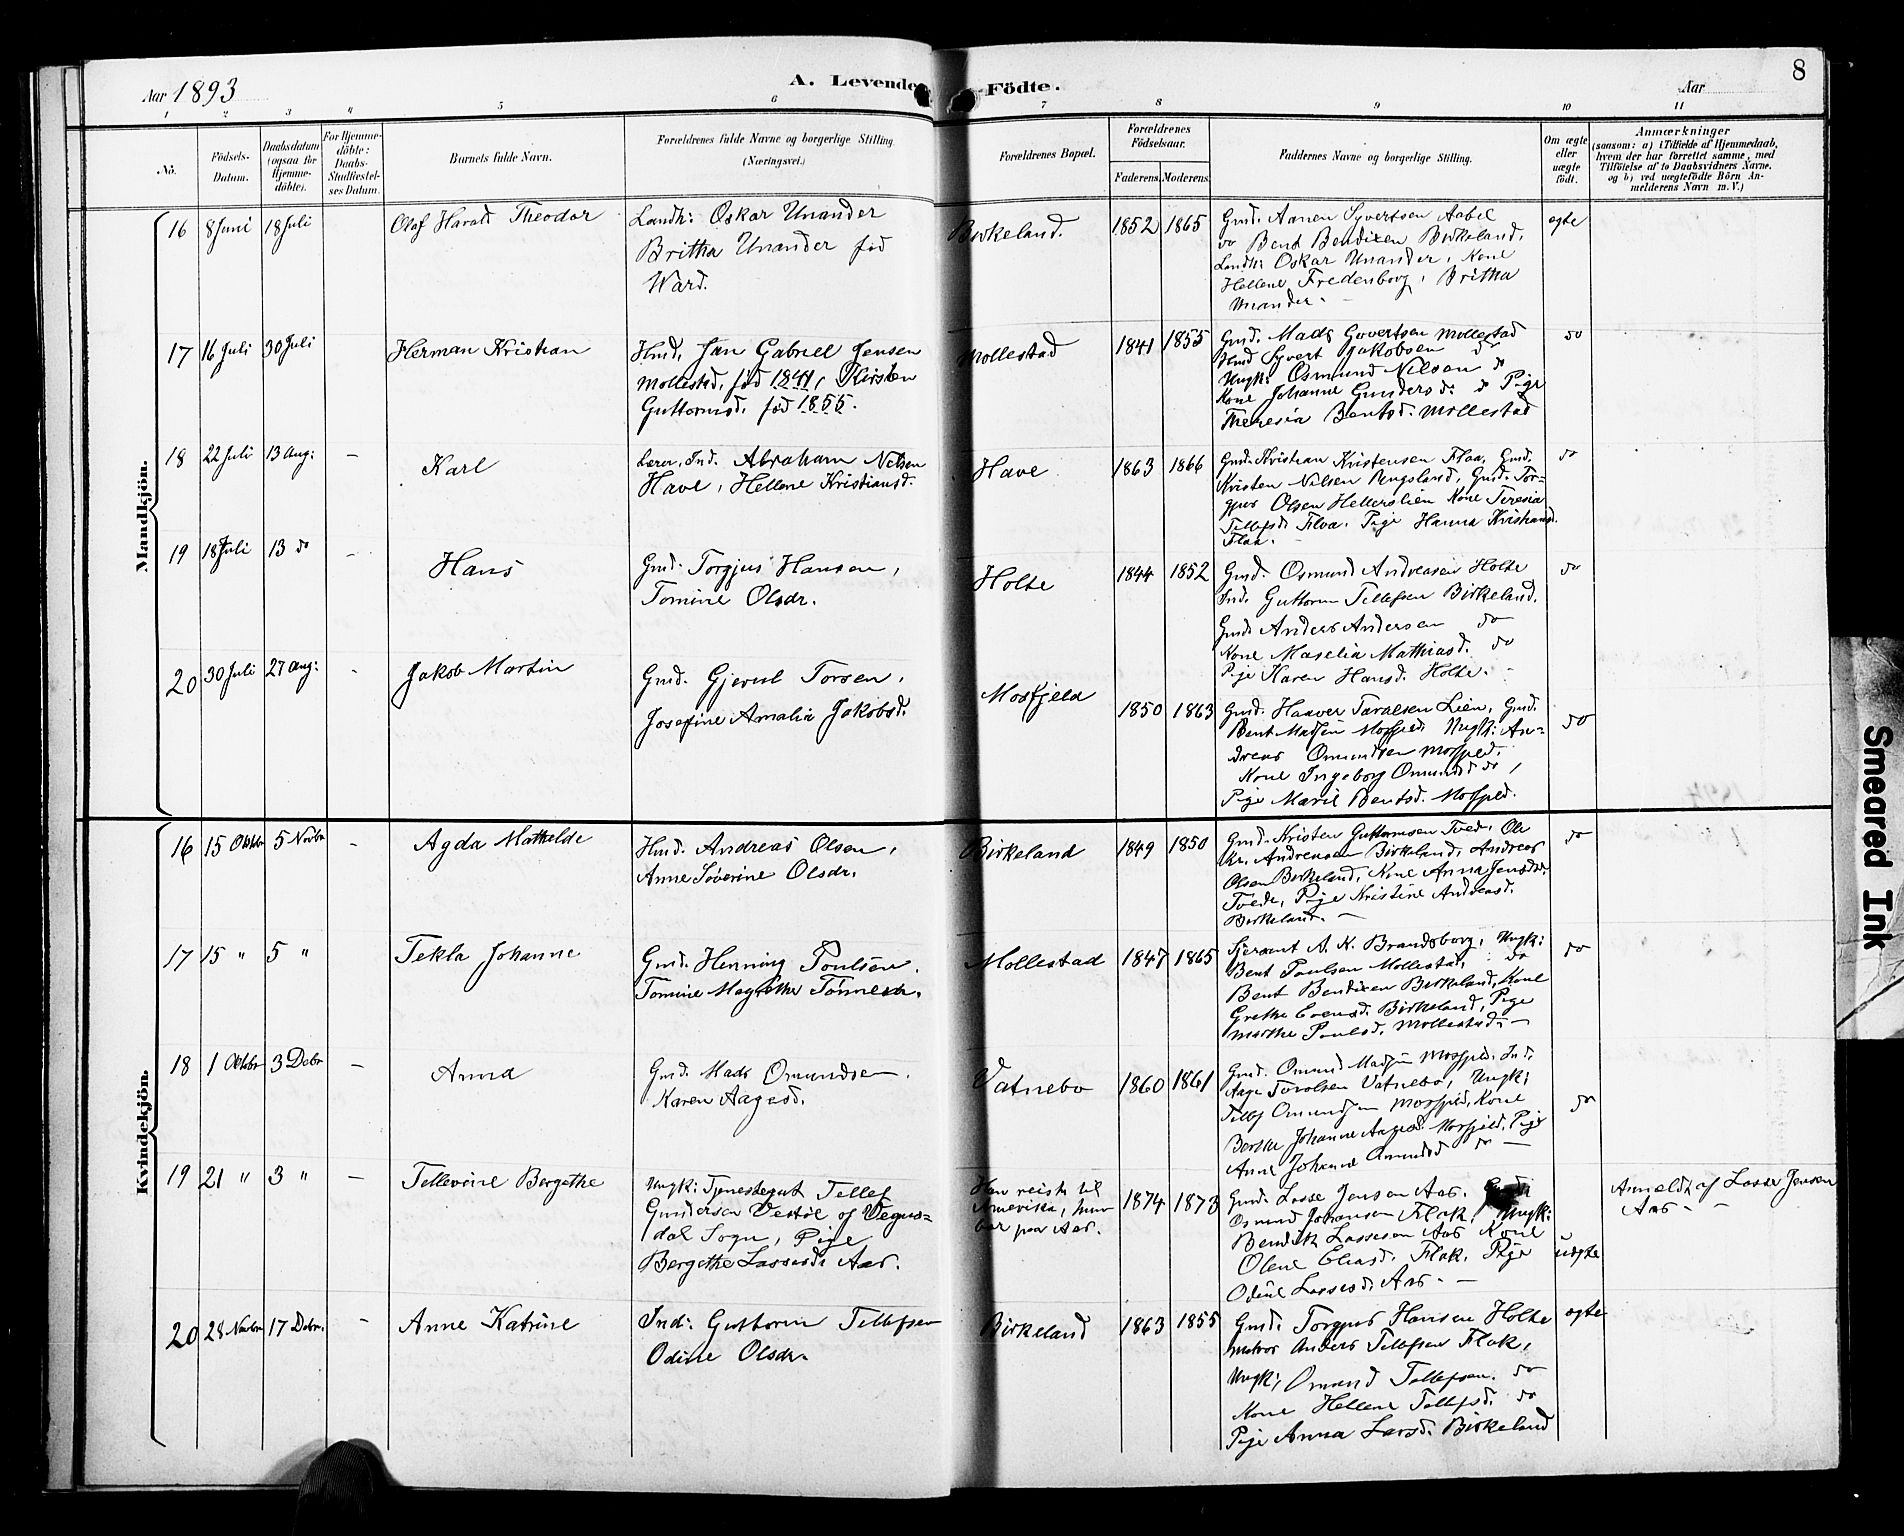 Aar 1893
A. Levende Födte.
Aar
8
1 2 3 4 5 6 7 8 9 10 11
No.
Födsels-Datum.
Daabsdatum (ogsaa for Hjemme-döbte).
For Hjemme-döbte: Daabs-Stadfæstel-ses Datum.
Barnets fulde Navn.
Forældrenes fulde Navne og borgerlige Stilling (Næringsvei.)
Forældrenes Bopæl.
Forældrenes Födselsaar.
Faderens. Moderens.
Faddernes Navne og borgerlige Stilling.
Om ægte eller uægte födt.
Anmærkninger
(saasom: a) i Tilfælde af Hjemmedaab,
hvem der har forrettet samme, med
Tilföielse af to Daabsvidners Navne,
og b) ved uægtefödte Börn An-
melderens Navn m. V.)
Mandkjön.
16 8 Juni 18 Juli Olaf Harald Theodor
Landh: Oskar Unander
Britha Unander fød
Ward.
Birkeland. 1852 1865
Gmd. Aanen Syvertsen Aabel
do Bent Bendixen Birkeland,
Landh: Oskar Unander, Kone
Hellene Fredenborg, Britha
Unander. –
egte
17 16 Juli 30 Juli Herman Kristian
Hmd. Jan Gabriel Jensen
Mollestad, fød 1841, Kirsten
Guttormsd. fød 1855.
Mollestad 1841 1855
Gmd. Mads Govertsen Mollestad
Hmd Syvert Jakobsen do
Ungk: Osmund Nilsen do
Kone Johanne Gundersd. do Pige
Theresia Bentsd. Mollestad
do
18 22 Juli 13 Aug: – Karl
Lærer, Ind. Abraham Nilsen
Have, Hellene Kristiansd.
Have 1863 1866
Gmd. Kristian Kristensen Flaa, Gmd.
Kristen Nilsen Rugsland, Gmd. Tor-
gjus Olsen Hellerslien Kone Teresia
Tellefsd. Flaa. Pige Hanna Kristiansd.
Flaa. –
do
19 18 Juli 13 do – Hans
Gmd. Torgjus Hansen,
Tomine Olsdr.
Holte 1844 1852
Gmd. Osmund Andreasen Holte
Ind. Guttorm Tellefsen Birkeland.
Gmd. Anders Andersen do
Kone Maselia Mathiasd. do
Pige Karen Hansd. Holte.
do
20 30 Juli 27 Aug: – Jakob Martin
Gmd. Gjerul Torsen,
Josefine Amalia Jakobsd.
Mosfjeld 1850 1863
Gmd. Haaver Taralsen Lien, Gmd.
Bent Madsen Mosfjeld. Ungk: An-
dreas Omundsen Mosfjeld,
Kone Ingeborg Omundsd do,
Pige Marie Bentsd. Mosfjeld.
do
Kvindekjön.
16 15 Oktbr 5 Novbr – Agda Mathelde
Hmd. Andreas Olsen,
Anne Søverine Olsdr.
Birkeland 1849 1850
Gmd. Kristen Guttormsen Tved, Ole
Kr. Andreasen Birkeland, Andreas
Olsen Birkeland, Kone Anna Jensdr.
Tvede, Pige Kristine Andreasd.
Birkeland. –
do
17 15 " 5 " Tekla Johanne
Gmd. Henning Poulsen.
Tomine Magrethe Tønnesdr.
Mollestad 1847 1865
Sjersant A. K. Brandsborg, Ungk:
Bent Poulsen Mollestad, do
Bent Bendixen Birkeland, Kone
Grethe Evensd. Birkeland, Pige
Marthe Poulsd. Mollestad. –
do
18 1 Oktobr 3 Debr – Anna
Gmd. Mads Omundsen.
Karen Aagesd.
Vatnebo 1860 1861
Gmd. Omund Madsen Mosfjeld. Ind.
Aage Torolsen Vatnebo, Ungk:
Tellef Omundsen Mosfjeld, Kone
Berthe Johanne Aagesd. Mosfjeld, Pige
Anne Johanne Omundsd do –
do
19 21 " 3 " – Tellevine Bergethe
Ungk: Tjenestegut Tellef
Gundersen Vestøl af Vegus-
dal Sogn, Pige
Bergethe Lassesd. Aas.
Han reist til
Amerika, hun
bor paa Aas.
1874 1873
Gmd. Lasse Jensen Aas.
Osmund Johansen Flak, Ungk:
Bendik Lassesen Aas Kone
Olene Eliasd. Flak, Pige
Odine Lassesd. Aas. –
uegte
Anmeldt af Lasse Jensen
Aas – –
20 28 Novbr 17 Debr. – Anne Katrine
Ind: Guttorm Tellefsen
Odine Olsdr.
Birkeland 1863 1855
Gmd. Torgjus Hansen Holte
Anders Tellefsen Flak,
Ungk: Omund Tellefsen. do
Kone Hellene Tellefsd. do
Pige Anna Larsd. Birkeland
egte
Smeared Ink